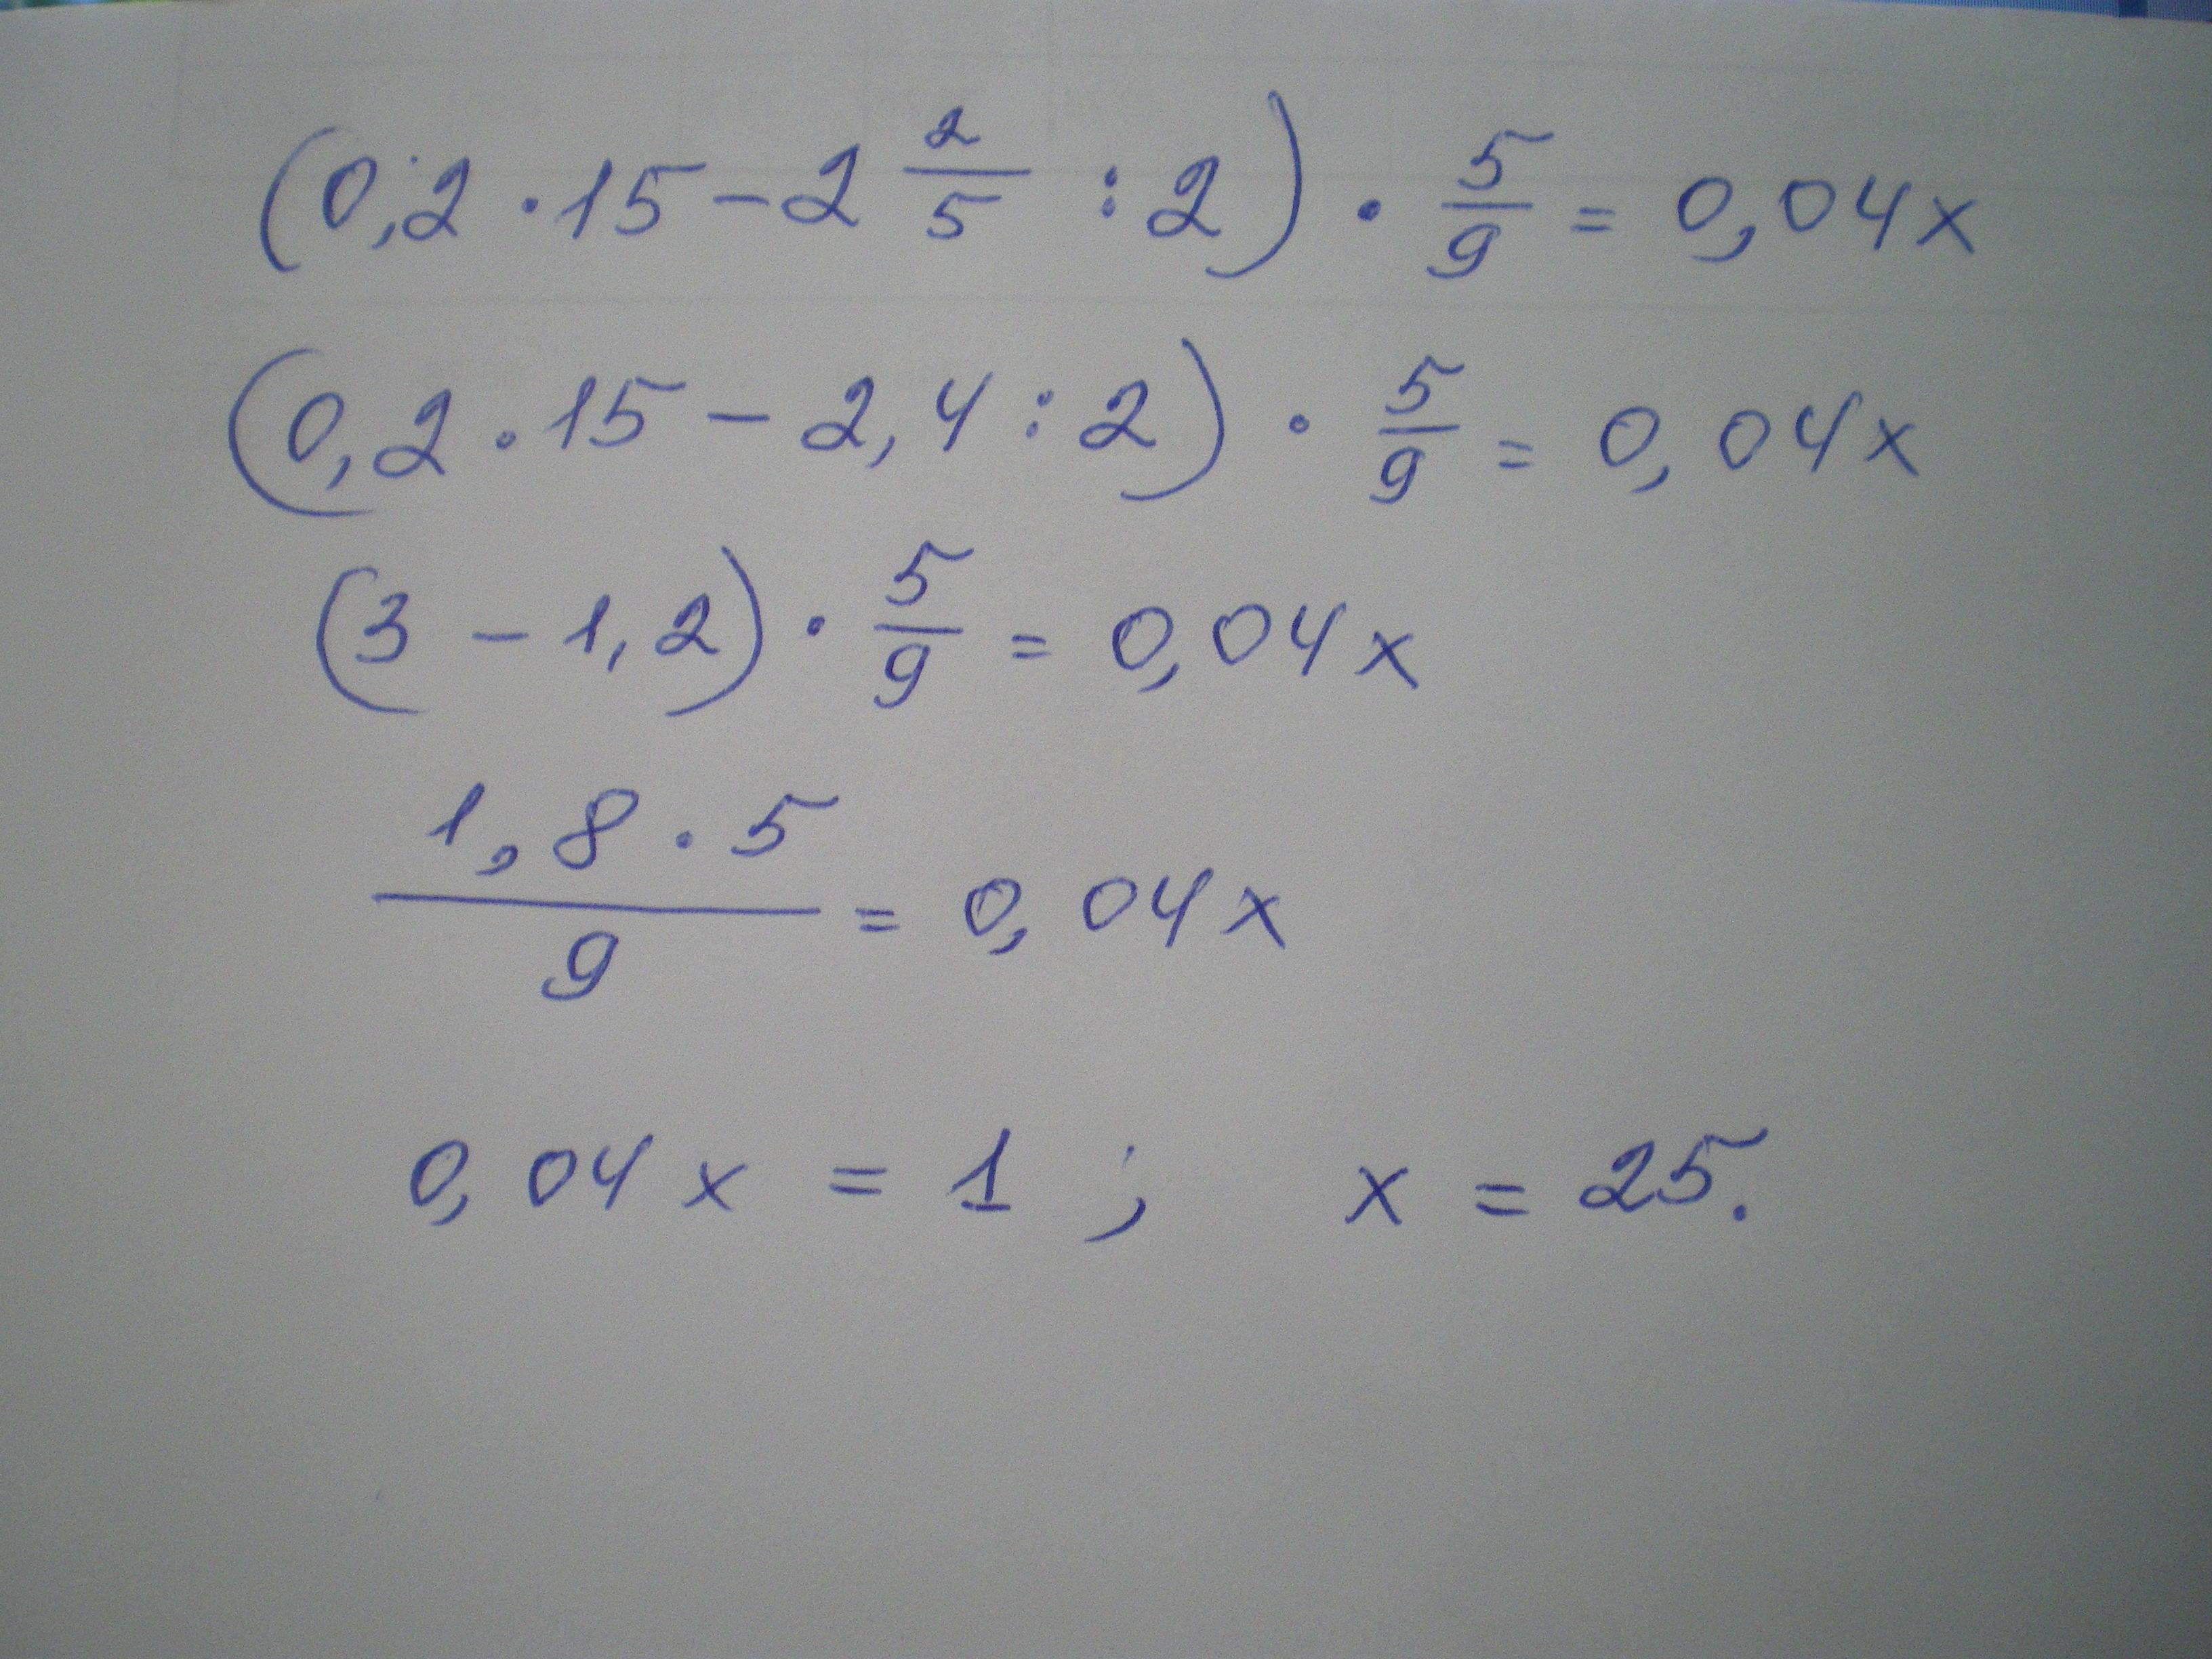 (0,2 · 15 - 2 2/5 : 2) · 5/9 = 0,04x
(0,2 · 15 - 2,4 : 2) · 5/9 = 0,04x
(3 - 1,2) · 5/9 = 0,04x
1,8 · 5 / 9 = 0,04x
0,04x = 1 ; x = 25.